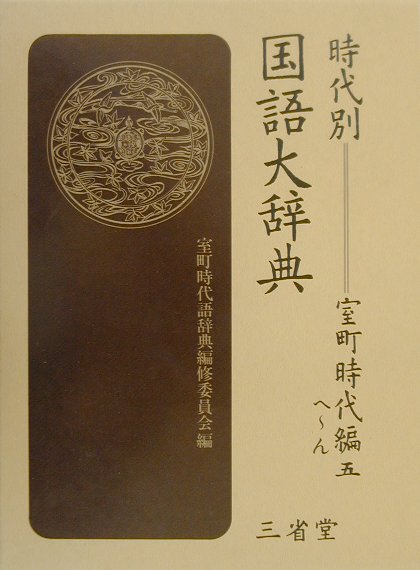 時代別══室町時代編五
へ〜ん
国語大辞典
室町時代語辞典編修委員会 編
三省堂